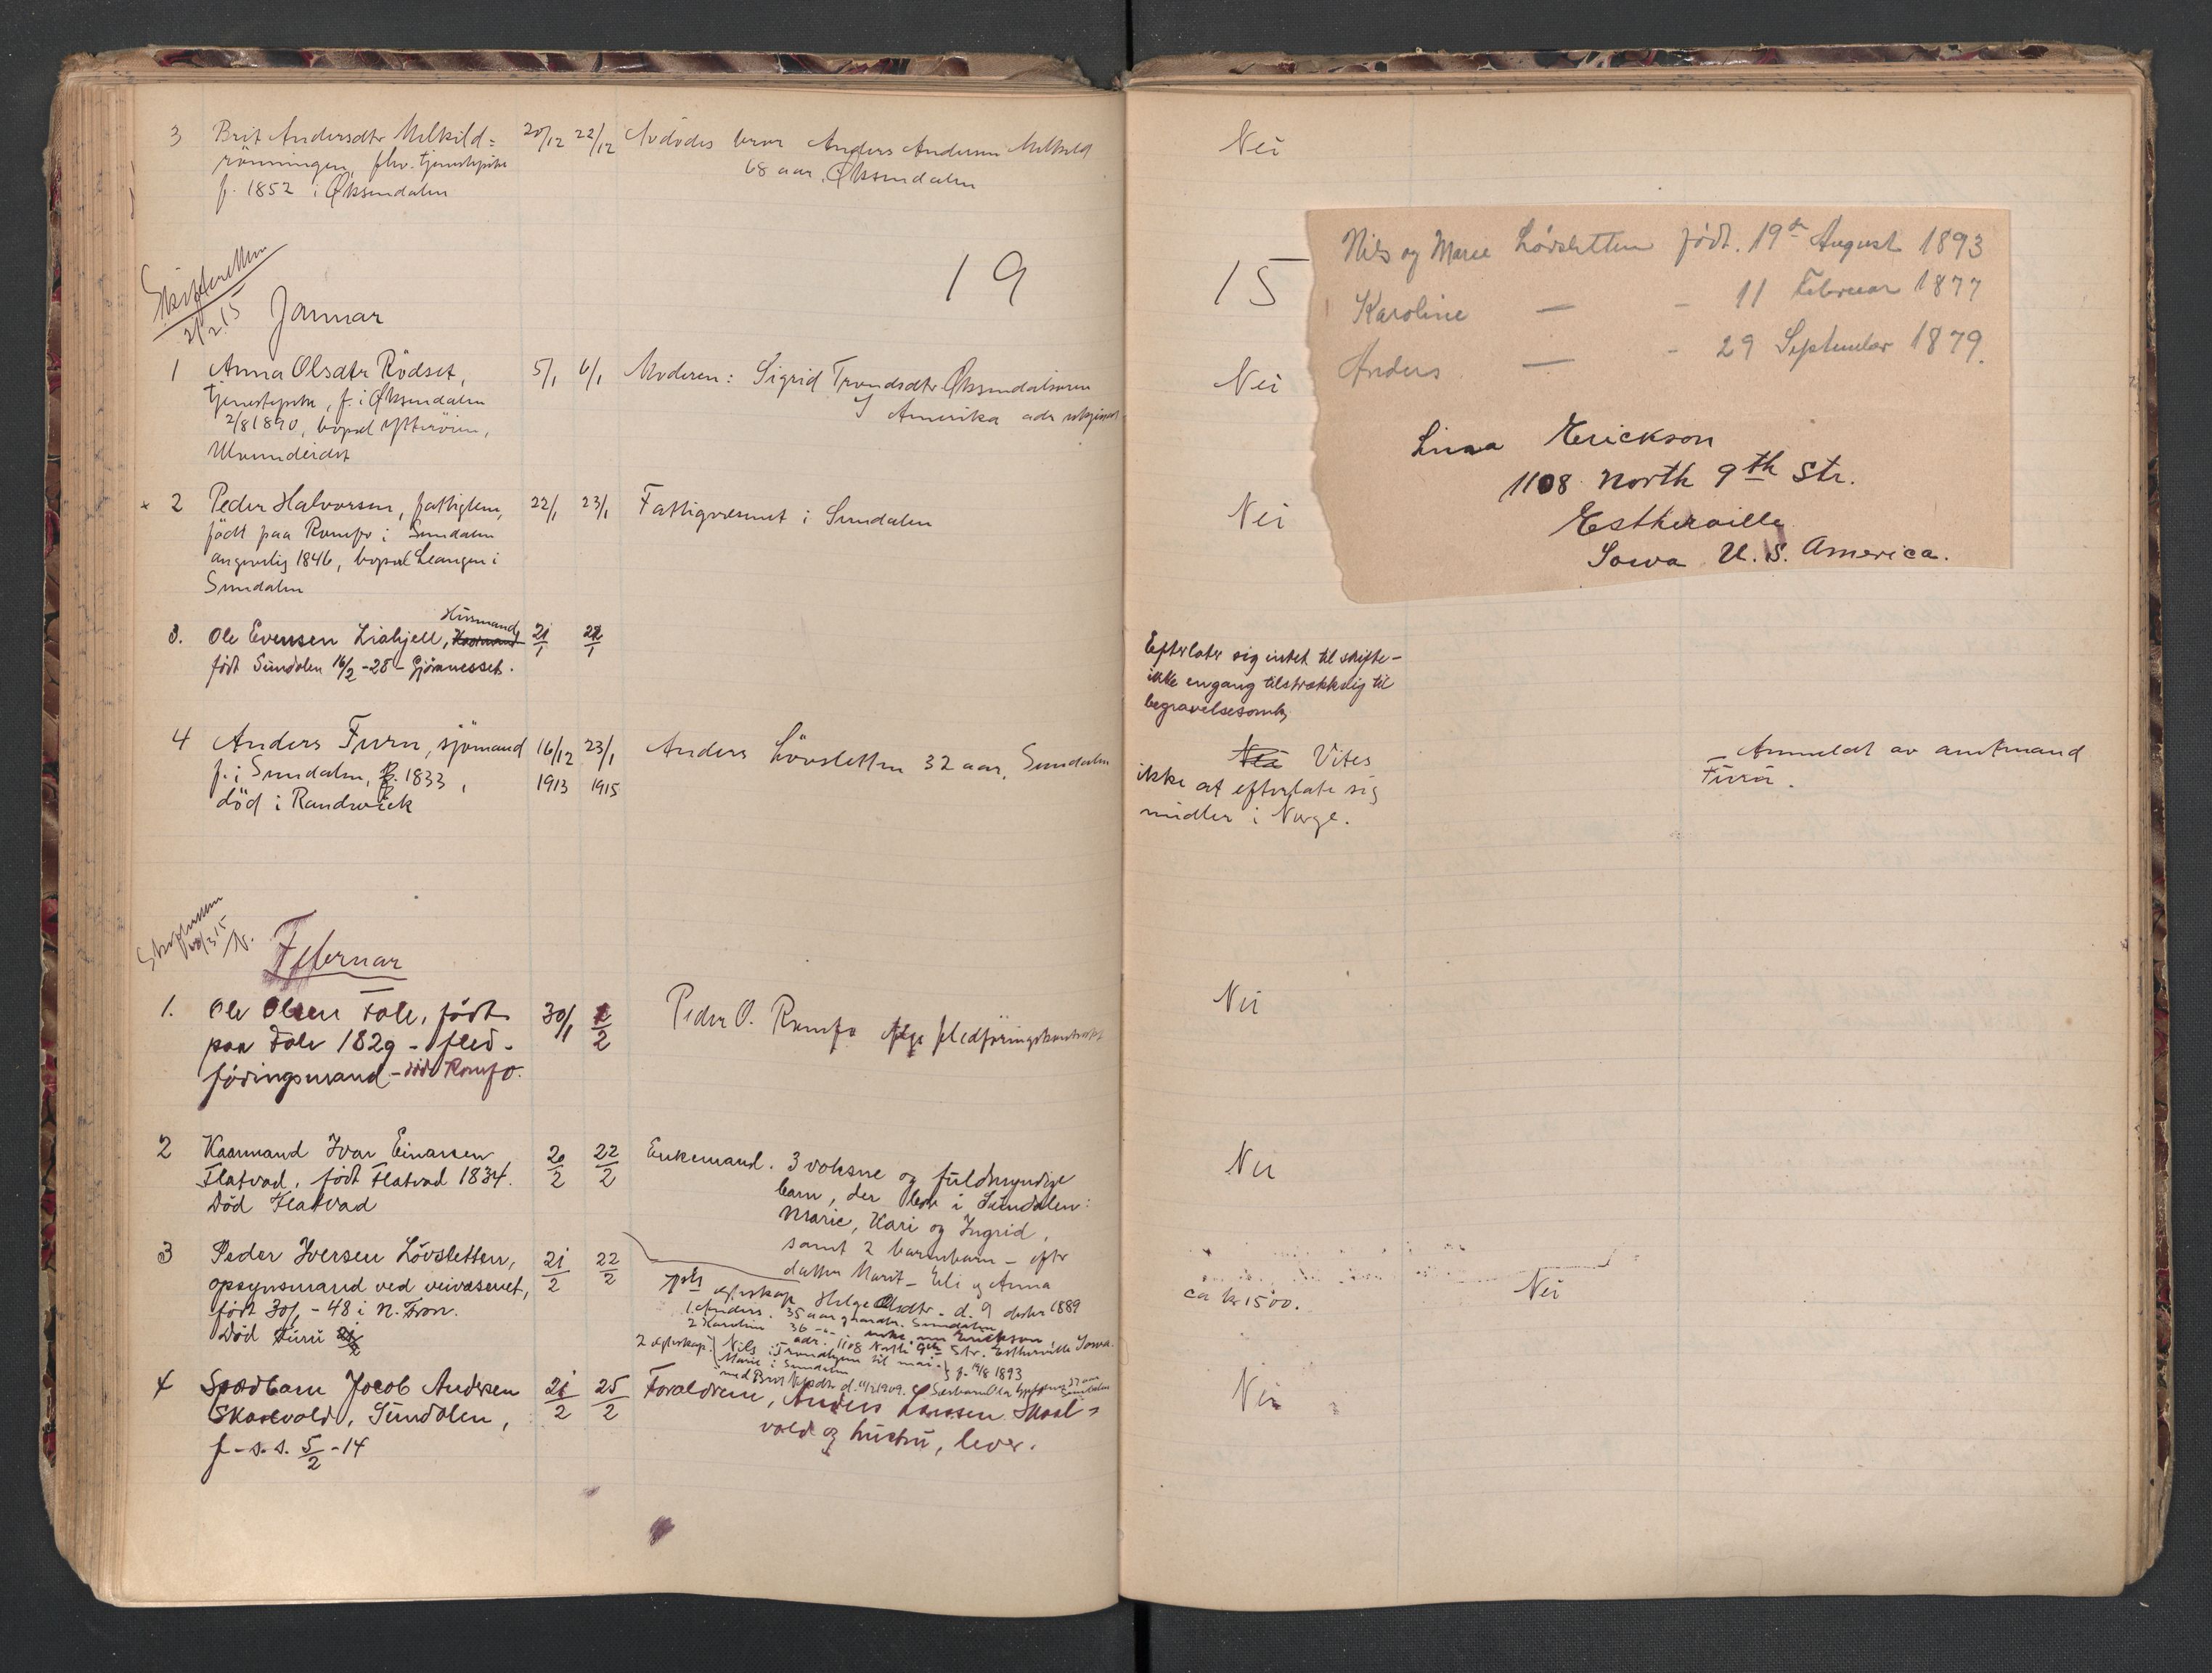 3 Brit Andersdtr Melkild=
rönningen, fhv. tjenestepike
f. 1852 i Øksendalen
20/12 22/12
Avdödes bror Anders Andersen Melkild
68 aar, Øksendalen
Nei
Skifteretten
2/2.15
Januar
19
15
1 Anna Olsdtr Rödset,
tjenestepike, f. i Øksendalen
2/8 1890, bopæl
5/1 6/1
Moderen: Sigrid Trondsdtr Øksendalsøren
I Amerika adr
Nei
x 2 Peder Halvorsen, fattiglem,
födt paa Romfo i Sundalen
angivelig 1846, bopæl Leangen i
Sundalen
22/1 23/1
Fattigvæsenet i Sundalen
Nei
Husmand
3. Ole Evensen Liahjell, Kaarmand
født Sundalen 16/2 -28 - Gjöranesset.
21/1 22/1
Efterlater sig intet til skifte-
ikke engang tilstrækkelig til
begravelsesomk.
4 Anders Furu, sjömand
f. i Sundalen, f. 1833,
död i Randwick
16/12 23/1
1913 1915
Anders Lövsletten 32 aar, Sundalen
Nei Vites
ikke at efterlate sig
midler i Norge.
Anmeldt av amtmand
Furu.
Nils og Marie Lövsletten födt. 19de August 1893
Karoline — - 11 Februar 1877
Anders — - 29 September 1879.
Lina Erickson
1108 North 9th Str.
Estherville
Iowa U. S. America.
Skifteretten
10/3 15
Februar
1. Ole Olsen Fale, født
paa Fale 1829 - fled-
föringsmand - död Romfo.
30/1 2/2
Peder O. Romfo ifølge fledföringskontrakt
Nei
2 Kaarmand Ivar Einarsen
Flatvad, født Flatvad 1834.
Død Flatvad
20/2 22/2
Enkemand. 3 voksne og fuldmyndige
barn, der bor i Sundalen:
Marie, Kari og Ingrid,
samt 2 barnebarn - efter
datter Marit - Eli og Anna
Nei
3 Peder Iversen Lövsletten,
opsynsmand ved veivæsenet,
født 30/1 -48 i N. Fron.
Død Furu
21/2 22/2
egteskap Helge Olsdtr - d. 9 oktbr 1889
1. Anders. 35 aar gaardbr. Sundalen
2 Karoline 36 -"- enke. nu Erickson
adr. 1108 North 9th Str. Estherville Iowa.
2 egteskap. Nils i Trondhjem til mai.
Marie i Sundalen f. 19/8 1893
med Brit d. 11/2 1909. Særbarn Ola 37 aar
Sundalen
ca kr 1500.
Nei
4 Spædbarn Jacob Andersen
Skaslvold, Sundalen,
f - s. s. 5/2 -14
21/2 25/2
Forældrene, Anders Larssen Skasl=
vold og hustru, lever.
Nei